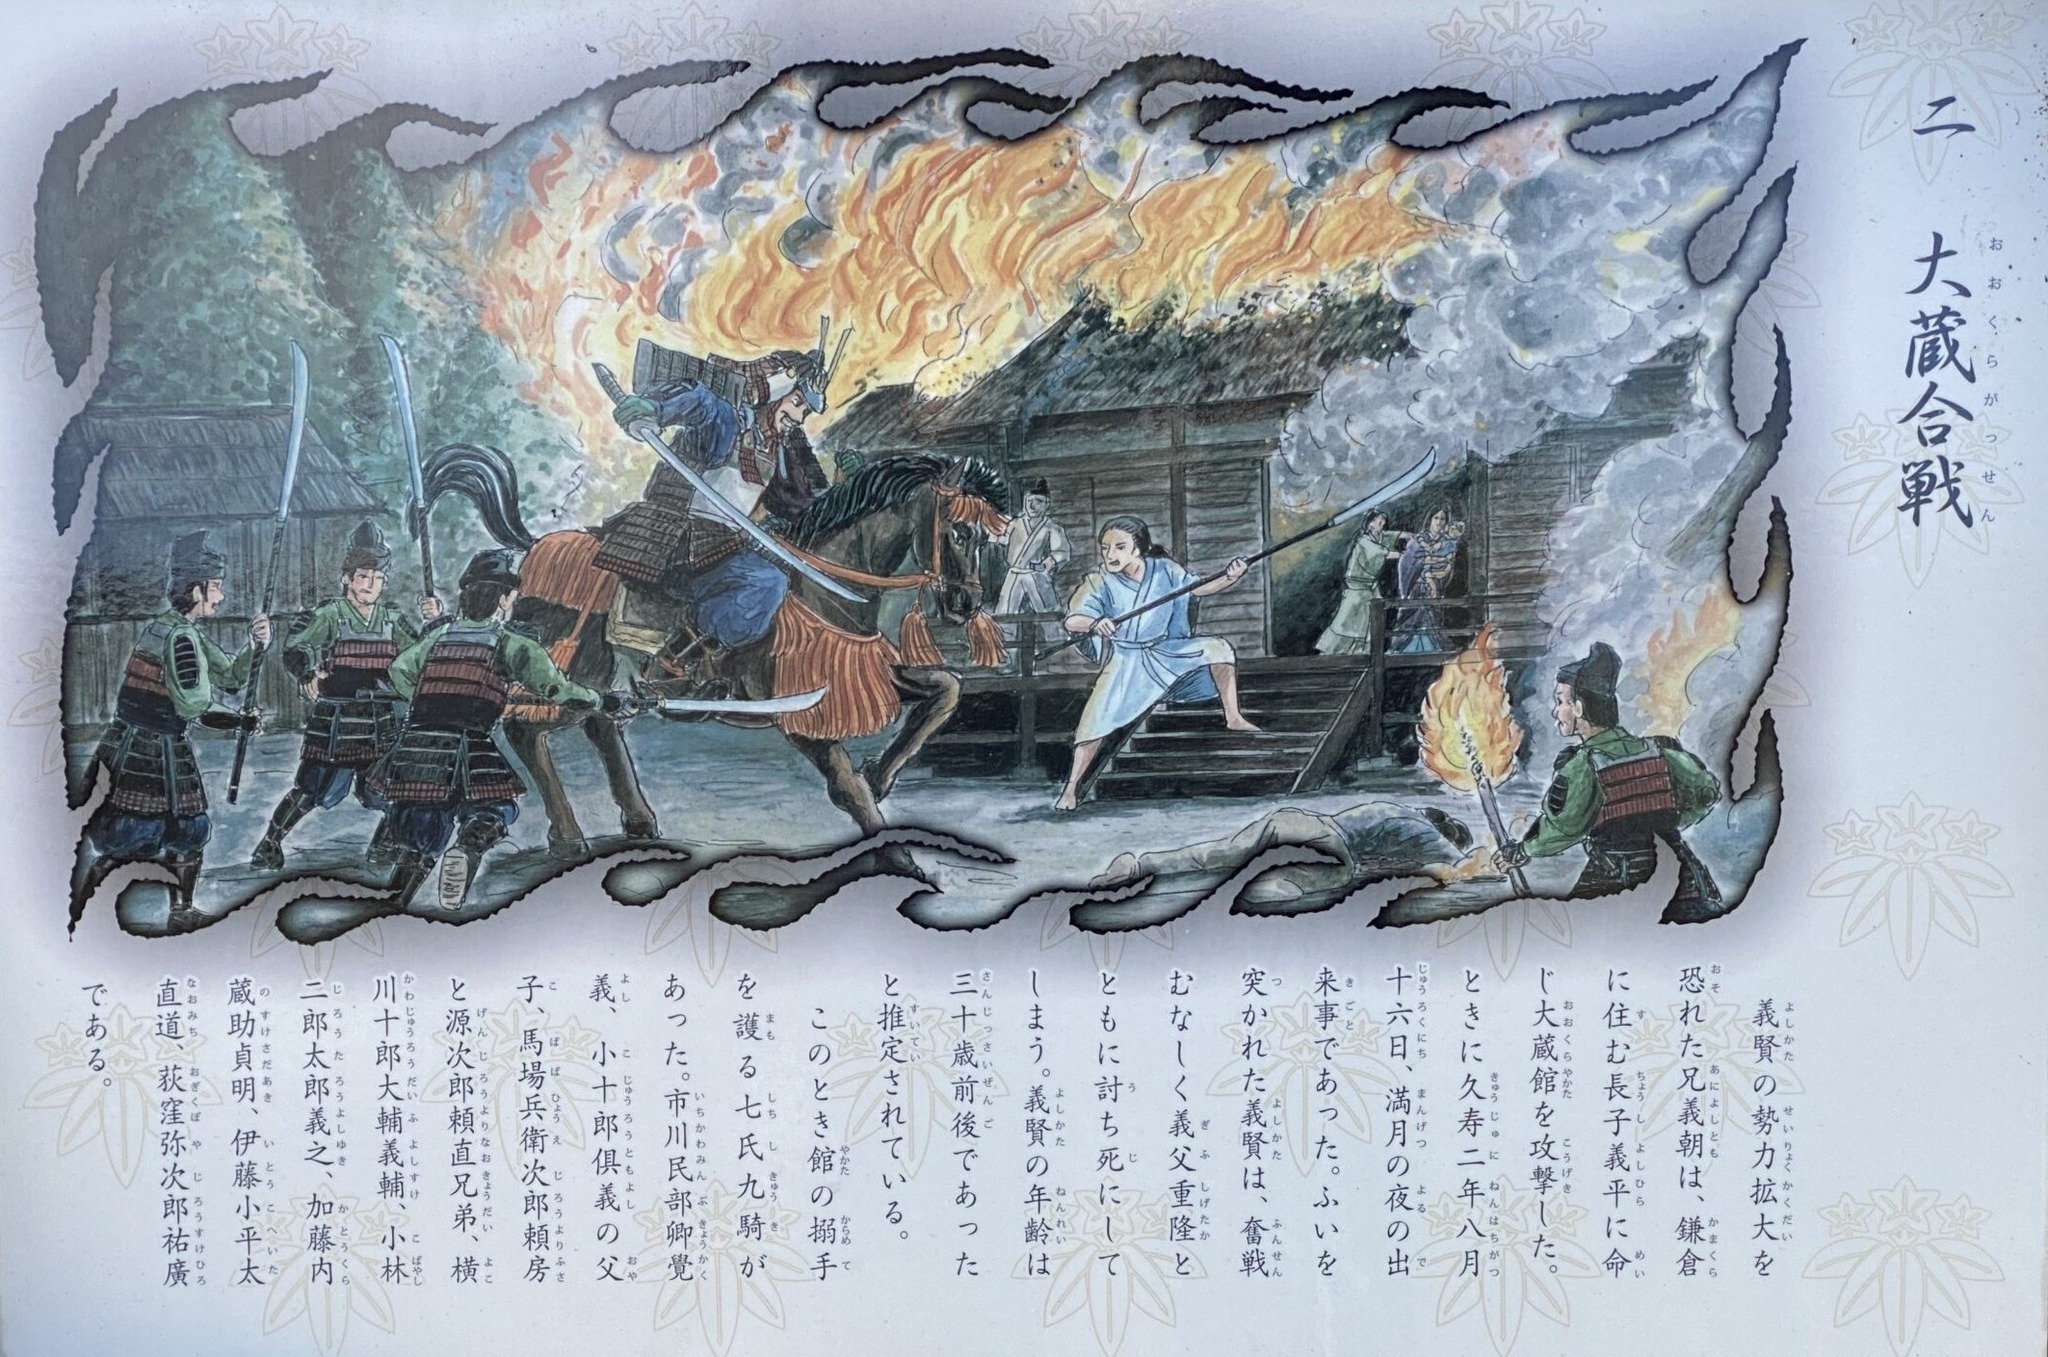 二 大蔵合戦
おおくらがっせん
義賢の勢力拡大を
恐れた兄義朝は、鎌倉
に住む長子義平に命
じ大蔵館を攻撃した。
ときに久寿二年八月
十六日、満月の夜の出
来事であった。ふいを
突かれた義賢は、奮戦
むなしく義父重隆と
ともに討ち死にして
しまう。義賢の年齢は
三十歳前後であった
と推定されている。
このとき館の搦手
を護る七氏九騎が
あった。市川民部卿覺
義、小十郎倶義の父
子、馬場兵衛次郎頼房
と源次郎頼直兄弟、横
川十郎大輔義輔、小林
二郎太郎義之、加藤内
蔵助貞明、伊藤小平太
直道、荻窪弥次郎祐廣
である。